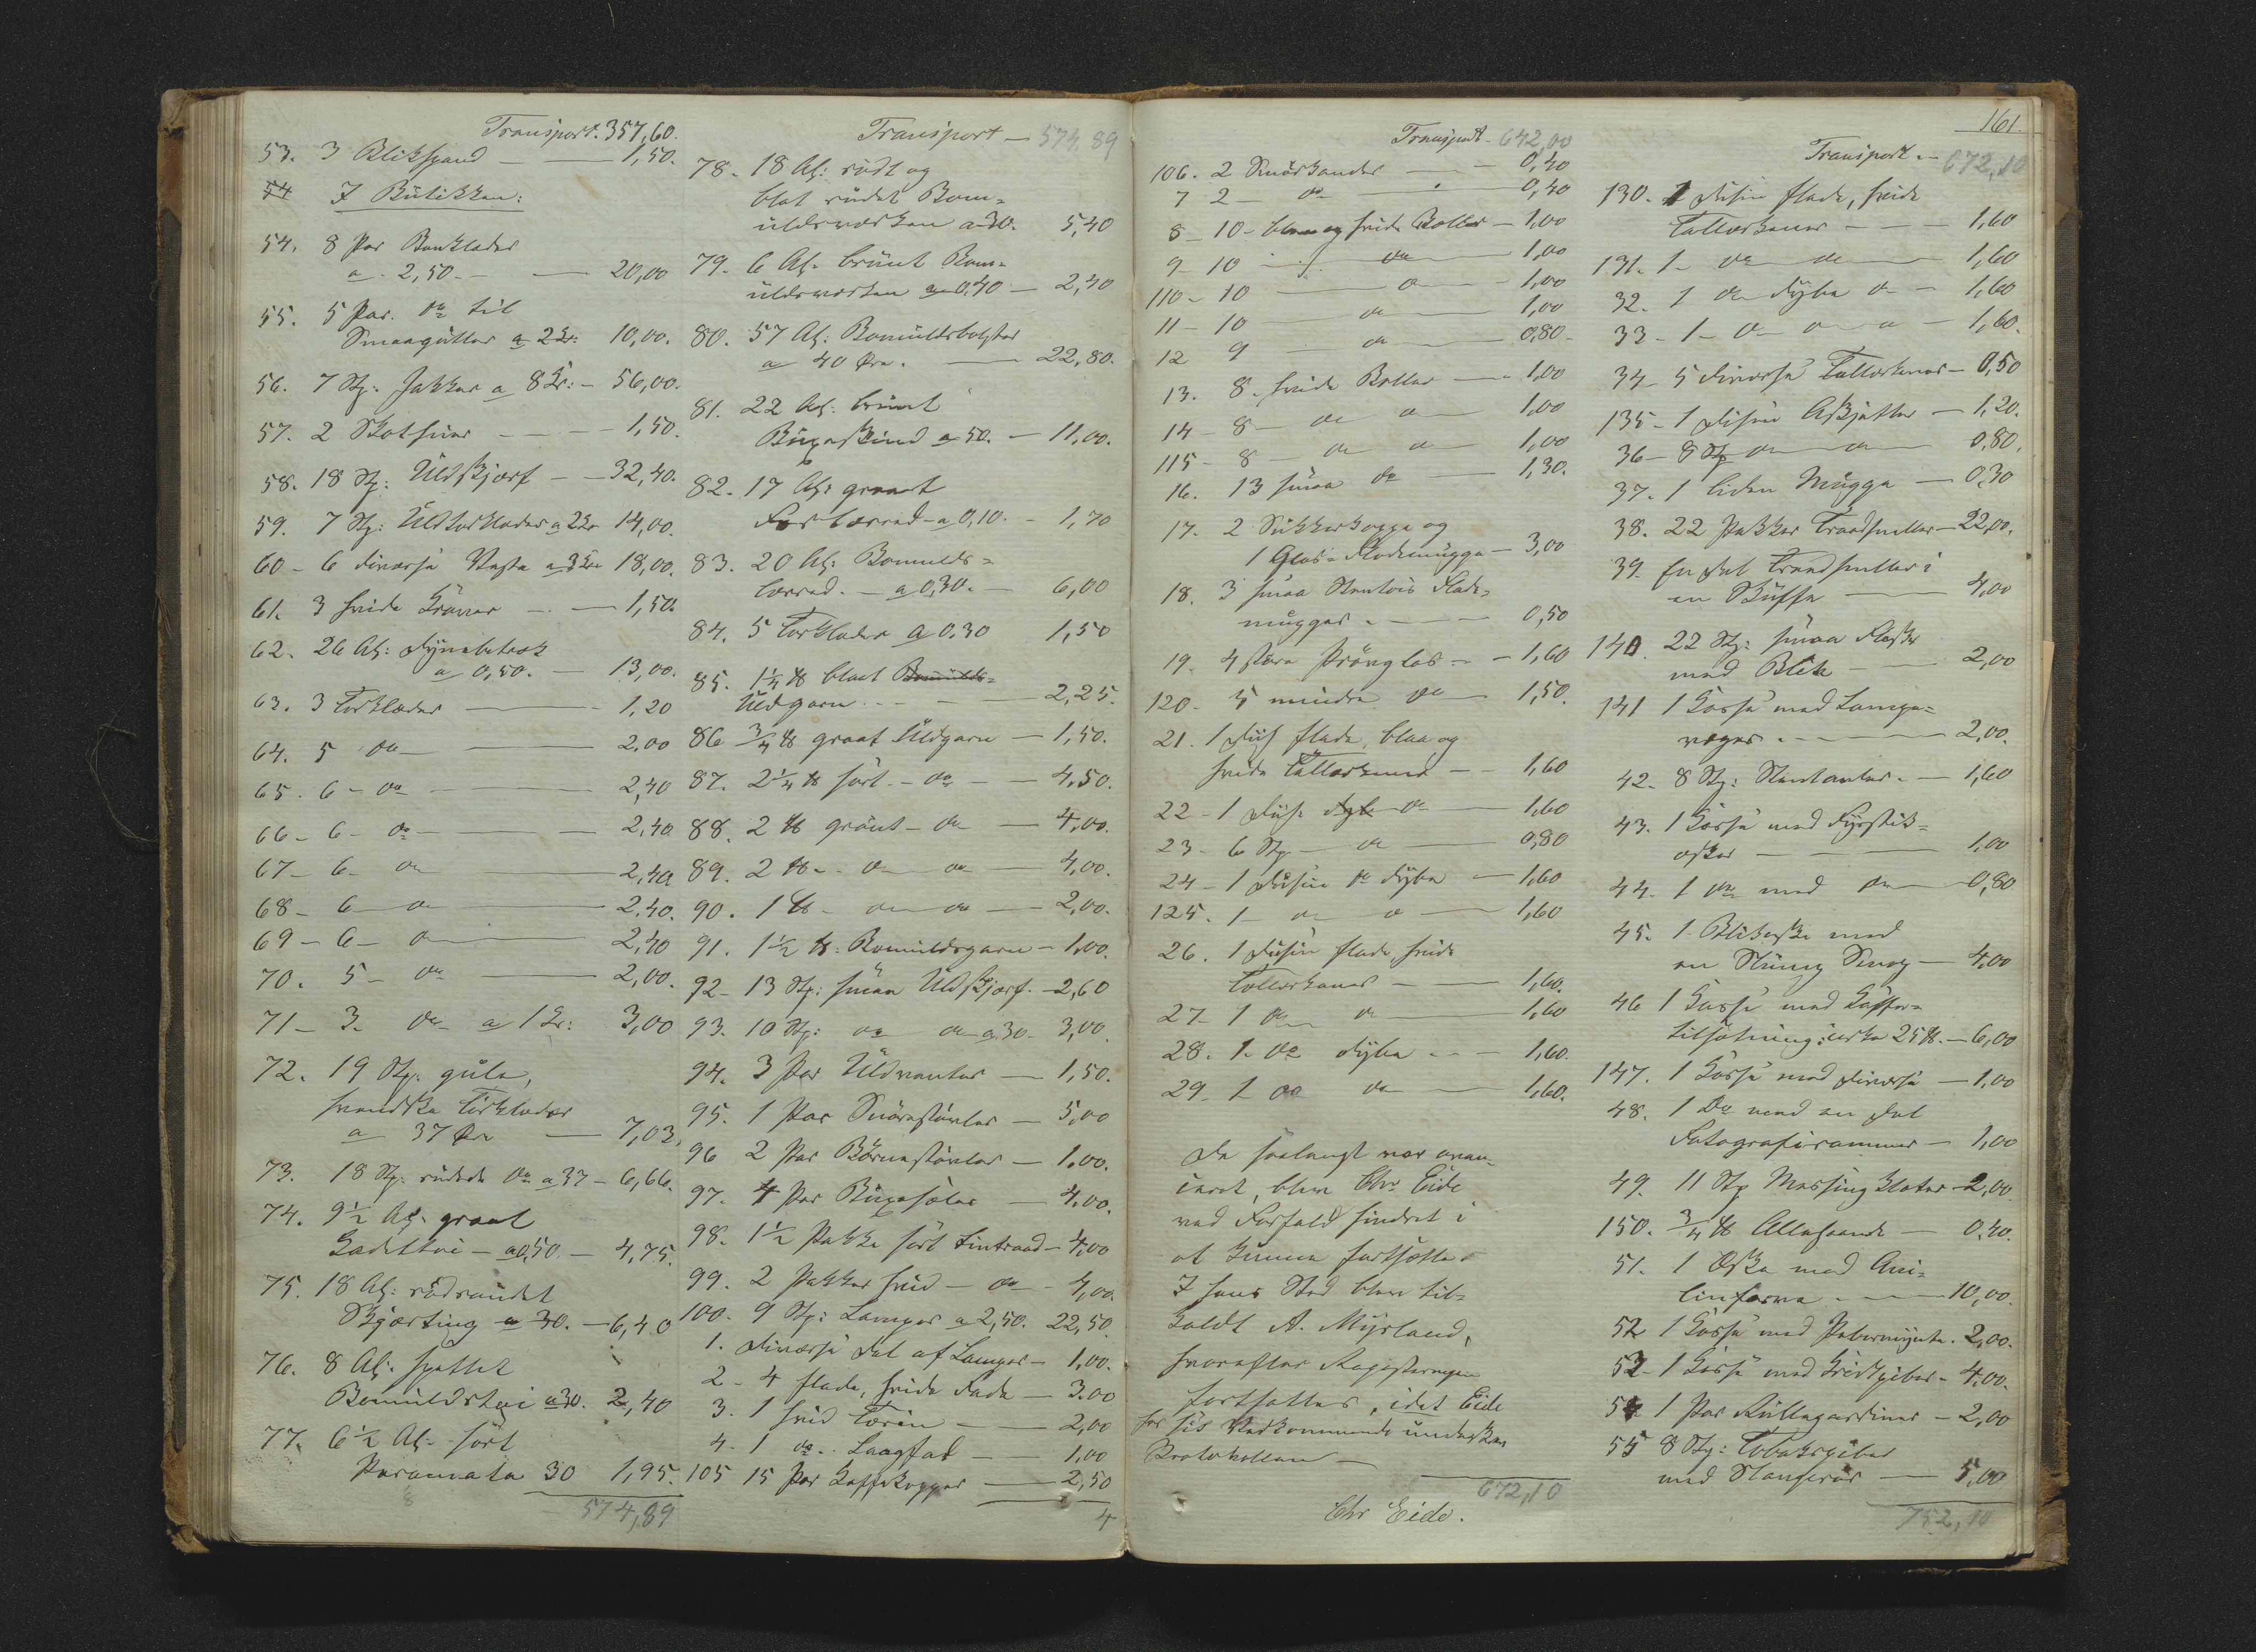 Transport. 357,60.
53. 3 Blikspand — — 1,50.
54 I Butikken:
54. 8 Par Benklæder
a 2,50. — — 20,00
55. 5 Par. do til
Smaagutter a 2 Kr: 10,00.
56. 7 Stz: Jakker a 8 Kr: — 56,00.
57. 2 — — 1,50.
58. 18 Stz: Uldskjærf — — 32,40.
59. 7 Stz: Uldtørklæder a 2 Kr 14,00.
60 — 6 diverse Veste a 3 Kr 18,00.
61. 3 hvide Kraver — — 1,50.
62. 26 Al: Dynebetræk
a 0,50. — 13,00.
63. 3 Tørklæder — 1,20
64. 5 do — 2,00
65. 6 — do — 2,40
66 — 6 — do — 2,40
67 — 6 — do — 2,40
68 — 6 — do — 2,40.
69 — 6 — do — 2,40
70. 5 — do — 2,00.
71 — 3. do — a 1 Kr: 3,00
72. 19 Stz. gule,
svenske Tørklæder
a 37 Øre — 7,03.
73. 18 Stz. rudede do a 37 — 6,66.
74. 9½ Al. graat
Kadettøi — a 0,50. — 4,75.
75. 18 Al: rødrandet
Skjørting a 30. — 6,40
76. 8 Al: spættet
Bomuldstøi a 30. 2,40
77. 6½ Al: sort
Paramata 30 1,95.
8
574,89
Transport — 574,89
78. 18 Al: rødt og
blat rudet Bom-
uldsværken a 30. 5,40
79. 6 Al. brunt Bom-
uldsværken a 0,40 — 2,40
80. 57 Al: Bomuldsbolster
a 40 Øre. — 22,80.
81. 22 Al: brunt
Buxeskind a 50. — 11,00.
82. 17 Al: graat
Forlærred — a 0,10. — 1,70
83. 20 Al: Bomulds-
lærred. — a 0,30. — 6,00
84. 5 Tørklæder a 0.30 1,50
85. 1¼ ℔ blaat Bomulds-
Uldgarn — — 2,25.
86 ¾ ℔ graat Uldgarn — 1,50.
87. 2¼ ℔ sort — do — — 4,50.
88. 2 ℔ grønt — do — 4,00.
89. 2 ℔ — do do — 4,00.
90. 1 ℔ — do do — 2,00.
91. 1½ ℔: Bomuldsgarn — 1,00.
92 — 13 Stz: smaa Uldskjærf. — 2,60
93. 10 Stz: do do a 30 — 3,00.
94. 3 Par Uldvanter — 1,50.
95. 1 Par Snørestøvler — 5,00
96 2 Par Børnestøvler — 1,00.
97. 4 Par Buxeseler — 4,00.
98. 1½ Pakke sort Tintraad — 4,00
99. 2 Pakker hvid — do — 4,00.
100. 9 Stz: Lamper a 2,50. 22,50
1. Diverse Del af Lamper — 1,00.
2 — 4 flade, hvide Fade — 3,00
3. 1 hvid Terin — 2,00
4. 1 do. Laagfad — 1,00
105 15 Par Kaffekopper — 2,50
4
Transport — 642,00
106. 2 Smørkander — 0,40
7 2 — do — 0,40
8 — 10 — blaa og hvide Boller — 1,00
9 — 10 — do — 1,00
110 — 10 — do — 1,00
11 — 10 — do — 1,00
12 9 — do — 0,80
13. 8. hvide Boller — 1,00
14 — 8 — do do — 1,00
115 — 8 — do do — 1,00
16. 13 smaa do — 1,30.
17. 2 Sukkerkoppe og
1 Glas-Flødemugge — 3,00
18. 3 smaa Stentøis Fløde-
mugger — — 0,50
19. 4 store Prøvglas — — 1,60
120. 5 mindre do — 1,50.
21. 1 Dus flade, blaa og
hvide Tallerkener — — 1,60
22 — 1 Dus. dybe do — 1,60
23 — 6 Stz — do — 0,80
24 — 1 Dusin do dybe — 1,60
125. 1 — do do — 1,60
26. 1 Dusin flade, hvide
Tallerkener — — 1,60.
27 — 1 do do — 1,60
28. 1. do dybe — — 1,60.
29 — 1 do do — 1,60.
Da saalangt var avan-
ceret, blev Chr Eide
ved Forfald hindret i
at kunne fortsætte.
I hans Sted blev til-
kaldt A. Myrland,
hvorefter Registreringen
fortsattes, idet Eide
for sit Vedkommende underskrev
Protokollen —
672,10
Chr Eide.
161.
Transport. — 672,10
130. 1 Dusin flade, hvide
Tallerkener — — 1,60
131. 1 — do do — 1,60
32. 1 do dybe do — 1,60
33 — 1 — do do do — 1,60.
34 — 5 diverse Tallerkener — 0,50
135 — 1 Dusin Asjetter — 1,20.
36 — 8 Stz do do 0,80.
37. 1 liden Mugge — 0,30
38. 22 Pakker Traadsneller — 22,00.
39. En Del Traadsneller i
en Skuffe — 4,00
140. 22 Stz: smaa Flasker
med Blæk — — 2,00
141 1 Kasse med Lampe-
væger — — 2,00.
42. 8 Stz: Stentavler. — 1,60
43. 1 Kasse med Fyrstik-
æsker — 1,00
44. 1 do med do — 0,80
45. 1 Blikæske med
en Slump Senep — 4,00
46 1 Kasse med Kaffe-
tilsætning: cirka 25 ℔. — 6,00
147. 1 Kasse med diverse — 1,00
48. 1 Do med en Del
Fotografirammer — 1,00
49. 11 Stz Messing Klokker — 2,00
150. ¾ ℔ Allehaande — 0,40.
51. 1 Æske med Ani-
linfarve — — 10,00.
52 1 Kasse med Pebermynte. 2,00.
53 — 1 Kasse med Kridtpiber — 4,00.
54 1 Par Rullegardiner — 2,00
55 8 Stz: Tobakspiber
med Slangerør — 5,00
752,10